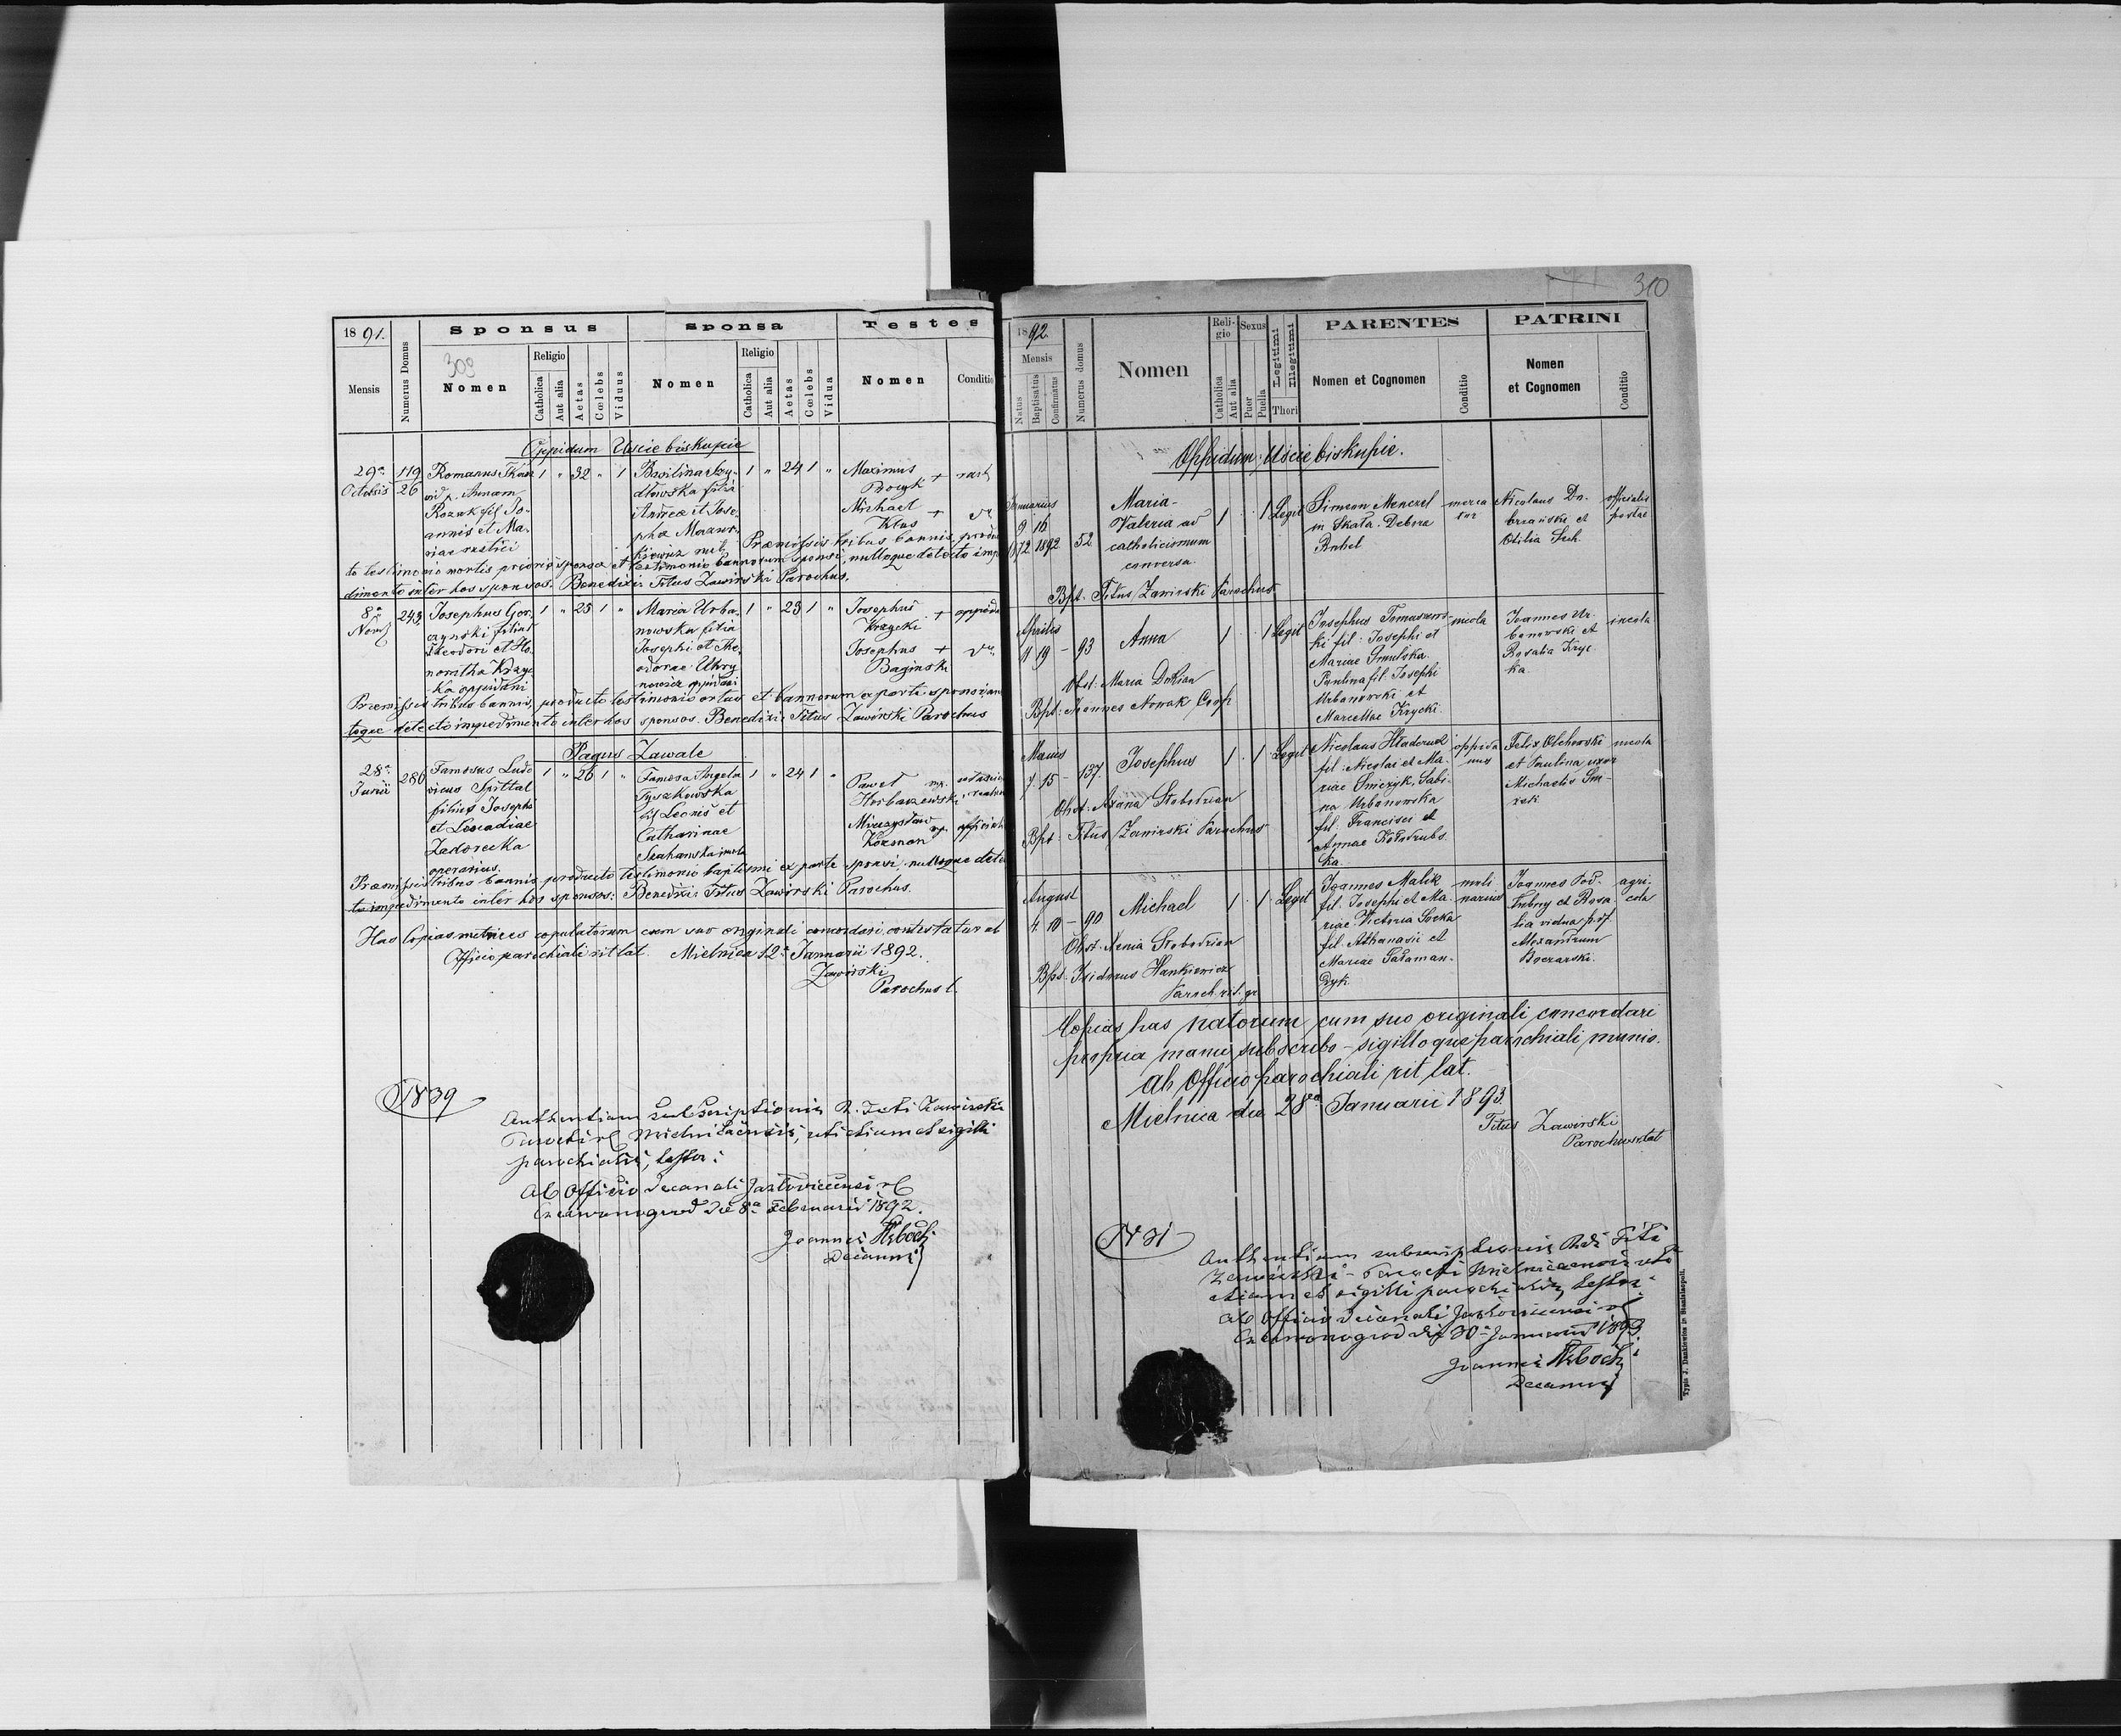 1891.
Sponsus
Sponsa
Testes
Mensis
Numerus Domus
308
Nomen
Religio
Catholica
Aut alia
Aetas
Cœlebs
Viduus
Nomen
Religio
Catholica
Aut alia
Aetas
Cœlebs
Vidua
Nomen
Conditio
Oppidum Uście biskupie
29a Octobris
119
26
Romanus
vid p. Annam
Rozuk fil Jo-
annis et Ma-
riae rustici
1 " 32 " 1
Basilina
filia
Andreae et Jose-
phae
1 " 24 1 "
Maximus
+
Michael
Kłus +
Praemissis tribus bannis, produc
to testimonio mortis prioris sponsae et testimonio bannorum sponsi, nulloque detecto impe
dimento inter hos sponsos. Benedixi: Titus Zawirski Parochus.
8a Novb
243
Josephus Gor-
czynski filius
Theodori et Ho-
noratha Krzyc-
ka oppidani
1 " 25 1 "
Maria Urba-
nowska filia
Josephi et The-
odorae Ukry
nowicz oppidani
1 " 23 1 "
Josephus + oppida
Krzycki
Josephus +
Baginski
Praemissis tribus bannis, producto testimonio ortus et bannorum ex parte sponsi, nul
loque detecto impedimento inter hos sponsos. Benedixi: Titus Zawirski Parochus
Pagus Zawale
28a Junii
286
Famosus Ludo
vicus Spittal
filius Josephi
et Leocadiae
Zadorecka
operarius.
1 " 26 1 "
Famosa Angela
Tyszkowska
fil Leonis et
Catharinae
1 " 24 1 "
Paweł mp.
Horbaczewski
Mieczysław mp.
Kozman
Praemissis tribus bannis, producto testimonio baptismi ex parte sponsi, nulloque detec
to impedimento inter hos sponsos: Benedixi: Titus Zawirski Parochus.
Has Copias metrices copulatorum cum suo originali concordari contestatur ab
Officio parochiali rit lat. Mielnica 12a Januarii 1892.
Zawirski
Parochus l.
N 39
Authentiam subscriptionis R. Titi Zawirski
Parochi rl Mielnicensis, uti etiam et sigilli
parochialis, testor:
Ab Officio Decanali Jazłoviecensi rl
Czerwonogrod die 8a Februarii 1892.
Joannes
Decanus
310
1892.
Mensis
Natus
Baptisatus
Confirmatus
Numerus domus
Nomen
Reli-
gio
Catholica
Aut alia
Sexus
Puer
Puella
Legitimi
Illegitimi
Thori
PARENTES
Nomen et Cognomen
Conditio
PATRINI
Nomen
et Cognomen
Conditio
Oppidum: Uście biskupie.
Januarius
9 16
1872 1892
52
Maria-
Valeria ad
catholicismum
conversa.
1 1 Legit
Simeon Menczel
in Skała. Debora
Rubel
merca
tor
Nicolaus Do-
brzański et
Otilia Sech.
officialis
postae
Bpt. Titus Zawirski Parochus
Aprilis
11 19 - 93
Anna
1 1 Legit
Josephus Tomaszews-
ki fil: Josephi et
Mariae Smulska.
Paulina fil. Josephi
Urbanowski et
Marcellae Krycki.
incola
Joannes Ur-
banowski et
Rosalia Kryc-
ka.
incola
Obst: Maria Dokian
Bapt: Joannes Nowak Coop
Maius
7. 15 - 137.
Josephus
1 1 Legit
Nicolaus
fil: Nicolai et Ma-
riae Smiczyk. Sabi-
na Urbanowska
fil: Francisci et
Annae Kołodrubs-
ka.
oppida
nus
Felix Olchowski
et Paulina uxor
Michaelis
incola
Obst: Axana Słobodzian
Bpt: Titus Zawirski Parochus
August
4. 10 - 90
Michael
1 1 Legit
Joannes Malik
fil. Josephi et Ma-
riae. Victoria Socka
fil. Athanasii et
Mariae Sałaman-
dyk.
moli
narius
Joannes Pod-
łubny et Rosa-
lia vidua p def
Alexandrum
Boczarski.
agri-
cola
Obst: Xenia Słobodzian
Bpt: Isidorus Hankiewicz
Paroch. rit. gr
Copias has natorum cum suo originali concordari
propria manu subscribo - sigilloque parochiali munio.
Ab Officio parochiali rit lat.
Mielnica die 28a Januarii 1893.
Titus Zawirski
Parochus r. lat
N 31
Authentiam subscriptionis Rdi Titi
Zawirski - Parochi Mielnicensis uti
etiam et sigilli parochialis, testor:
Ab Officio Decanali Jazłoviecensi rl
Czerwonogrod die 30a Januarii 1893
Joannes
Decanus
Typis J. Dankiewicz in Stanislaopoli.